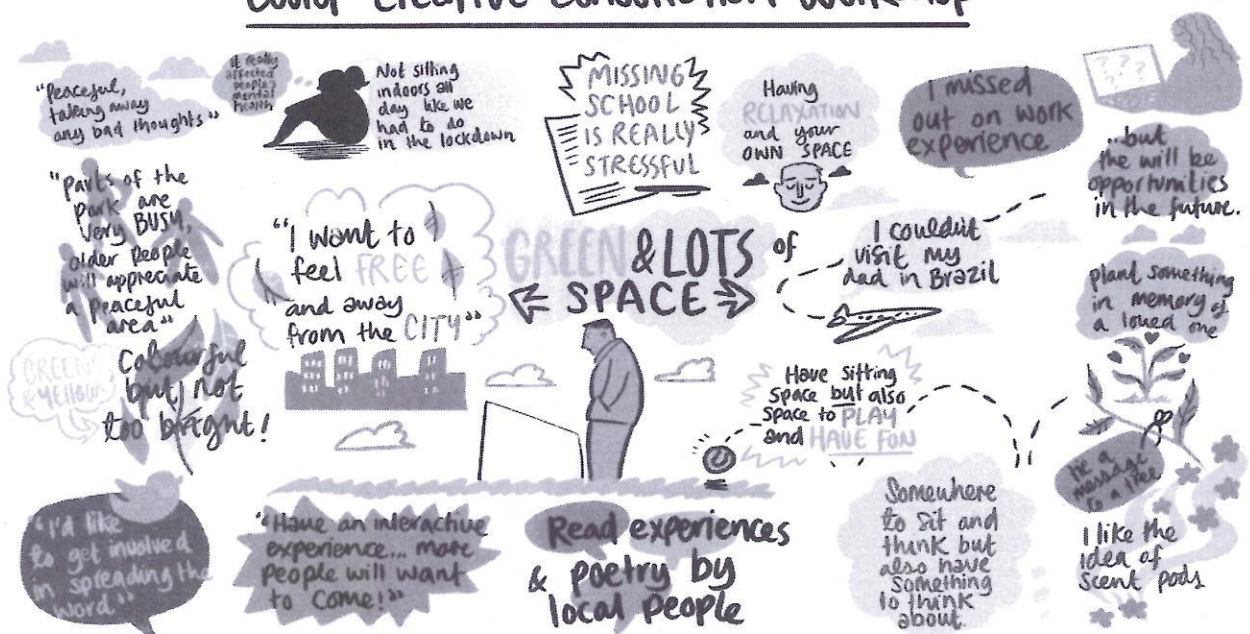 Covid Creative Consultation Workshop
"Peaceful,
taking away
any bad thoughts"
It really
affected
people's
mental
health
Not sitting
indoors all
day like we
had to do
in the lockdown
MISSING
SCHOOL
IS REALLY
STRESSFUL
Having
RELAXATION
and your
OWN SPACE
I missed
out on work
experience
? ? ?
? ? ?
...but
the will be
opportunities
in the future.
"Parts of the
park are
very BUSY,
older people
will appreciate
a peaceful
area"
"I want to
feel FREE
and away
from the CITY"
GREEN & LOTS of
SPACE
I couldn't
visit my
dad in Brazil
plant something
in memory of
a loved one
GREENS
& YELLOWS
Colourful
but not
too bright!
Have sitting
space but also
space to PLAY
and HAVE FUN
tie a
message
to a tree
"I'd like
to get involved
in spreading the
word"
"Have an interactive
experience... more
people will want
to come!"
Read experiences
& poetry by
local people
Somewhere
to sit and
think but
also have
something
to think
about.
I like the
idea of
scent pods